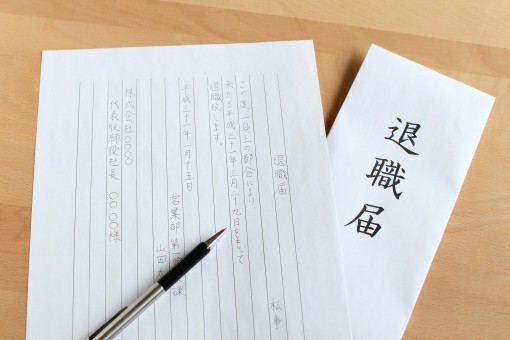 退職届
退職届
私事
この度、一身上の都合により
来たる平成二十一年三月二十九日をもって
退職致します。
平成二十一年一月十五日
営業部 第一 課
山田
株式会社○○○○
代表取締役社長 ○○○○様